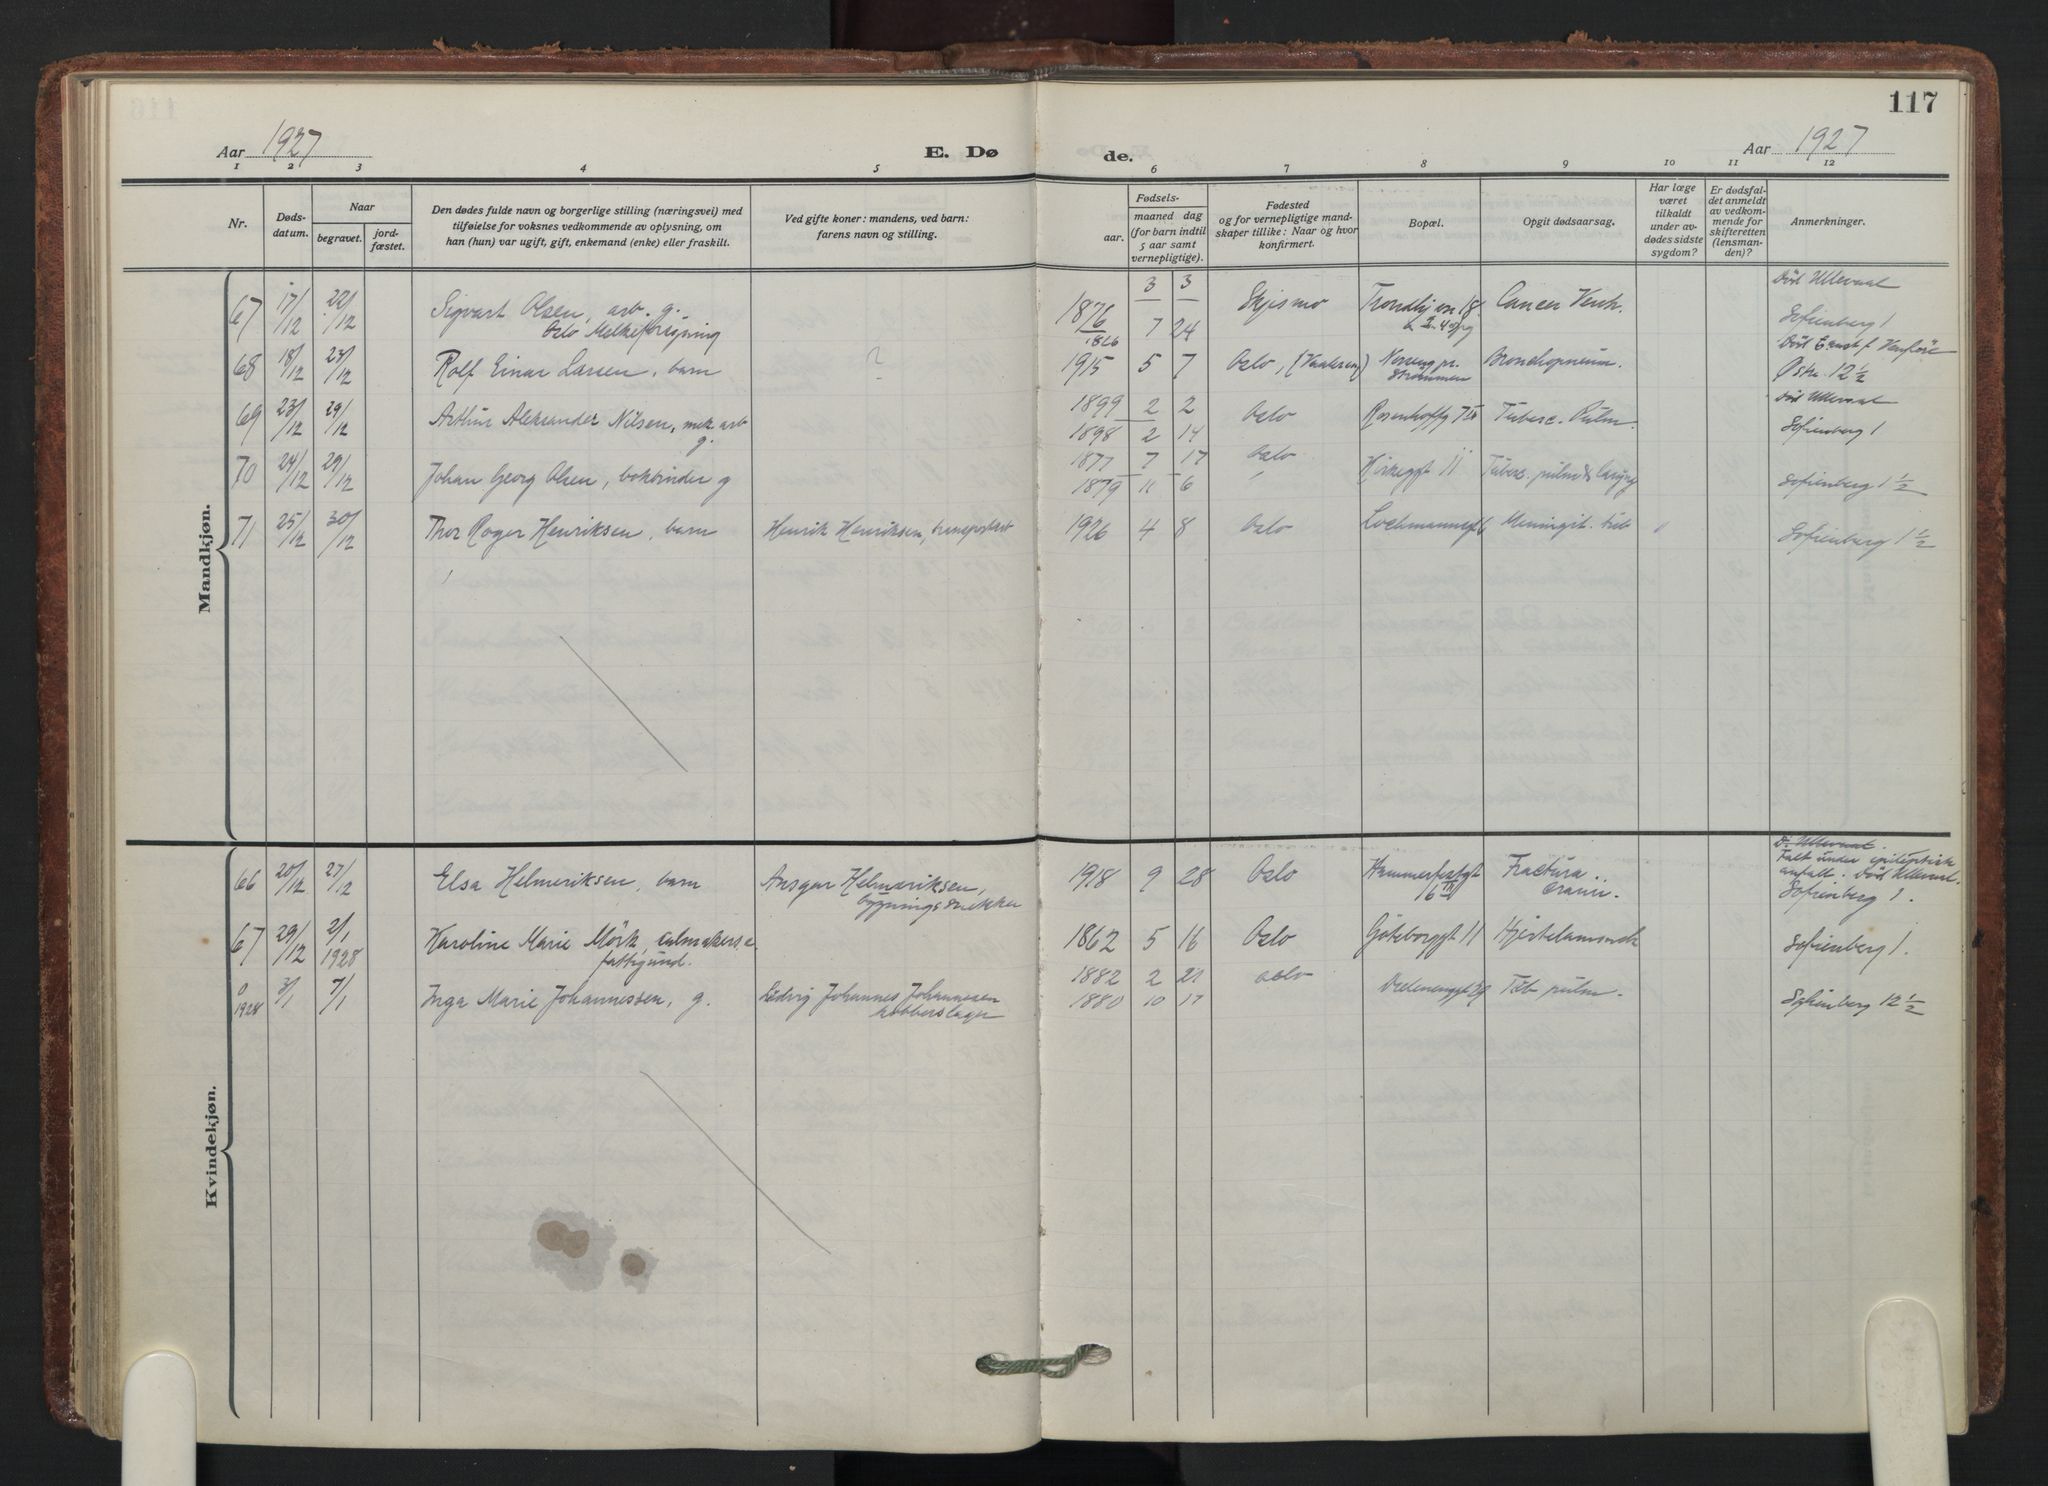 117
Aar 1927
E. Dø
de.
Aar 1927
1 2 3 4 5 6 7 8 9 10 11 12
Nr.
Døds-
datum.
Naar
begravet.
jord-
fæstet.
Den dødes fulde navn og borgerlige stilling (næringsvei) med
tilføielse for voksnes vedkommende av oplysning, om
han (hun) var ugift, gift, enkemand (enke) eller fraskilt.
Ved gifte koner: mandens, ved barn:
farens navn og stilling.
Fødsels-
aar.
maaned dag
(for barn indtil
5 aar samt
vernepligtige).
Fødested
og for vernepligtige mand-
skaper tillike: Naar og hvor
konfirmert.
Bopæl.
Opgit dødsaarsag.
Har læge
været
tilkaldt
under av-
dødes sidste
sygdom?
Er dødsfal-
det anmeldt
av vedkom-
mende for
skifteretten
(lensman-
den)?
Anmerkninger.
Mandkjøn.
3 3 Död Ullevaal
67 17/12 22/12 Sigvart Olsen, arb. g. 1876 Cancer Ventr.
Oslo Melkeforsyning 7 24 Sofienberg 1
68 18/12 23/12 Rolf Einar Larsen, barn ? 1915 5 7 Oslo, Bronchopneum.
Østre 12 1/2
1899 2 2 Död Ullevaal
69 23/12 29/12 Arthur Aleksander Nilsen, mek arb Oslo Tuberc. Pulm.
g. 1898 2 14 Sofienberg 1
1877 7 17 Oslo
70 24/12 29/12 Johan Georg Olsen, bokbinder g Kirkegt 11
1879 11 6 Sofienberg 1 1/2
71 25/12 30/12 Thor Roger Henriksen, barn Henrik Henriksen, 1926 4 8 Oslo Meningit. tub Sofienberg 1 1/2
Kvindekjøn.
D. Ullevaal.
Falt under epileptisk
anfall. Död Ullevaal.
66 20/12 27/12 Elsa Helmeriksen, barn Ansgar Helmeriksen, 1918 9 28 Oslo Hammerfestgt Fractura
bygningssnekker cranii. Sofienberg 1.
67 29/12 2/1 1928 Karoline Marie Mörk, 1862 5 16 Oslo Göteborggt 11 Sofienberg 1.
fattigund.
1882 2 21 Oslo
1928 3/1 7/1 Inga Marie Johannessen, g. Ludvig Johannes Johannesen Tub pulm.
kobberslager 1880 10 17 Sofienberg 12 1/2